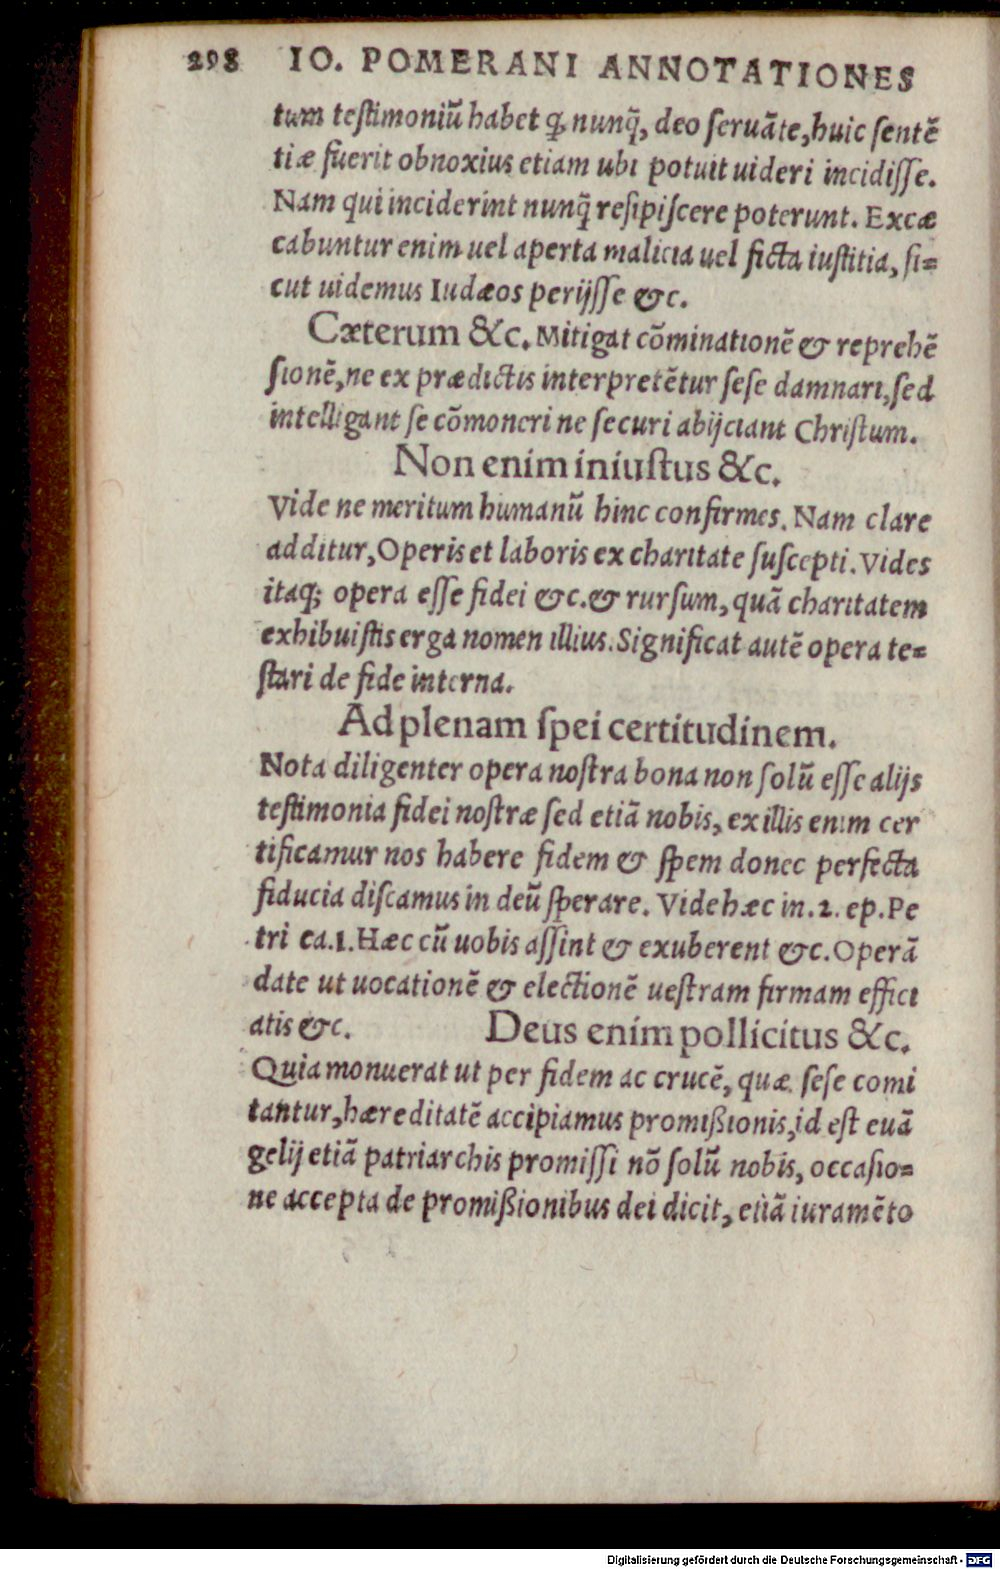 298 IO. POMERANI ANNOTATIONES
tum teſtimoniū habet ꝙ nunq̃, deo ſeruāte, huic ſentē
tiæ fuerit obnoxius etiam ubi potuit uideri incidiſſe.
Nam qui inciderint nunq̃ reſipiſcere poterunt. Excæ
cabuntur enim uel aperta malicia uel ficta iuſtitia, ſi=
cut uidemus Iudæos perijſſe &c.
Cæterum &c. Mitigat cōminationē & reprehē
ſionē, ne ex prædictis interpretētur ſeſe damnari, ſed
intelligant ſe cōmoneri ne ſecuri abijciant Chriſtum.
Non enim iniuſtus &c.
Vide ne meritum humanū hinc confirmes. Nam clare
additur, Operis et laboris ex charitate ſuſcepti. Vides
itaq; opera eſſe fidei &c. & rurſum, quā charitatem
exhibuiſtis erga nomen illius. Significat autē opera te=
ſtari de fide interna.
Ad plenam ſpei certitudinem.
Nota diligenter opera noſtra bona non ſolū eſſe alijs
teſtimonia fidei noſtræ ſed etiā nobis, ex illis enim cer
tificamur nos habere fidem & ſpem donec perfecta
fiducia diſcamus in deū ſperare. Vide hæc in .2. ep. Pe
tri ca.1. Hæc cū uobis aſſint & exuberent &c. Operā
date ut uocationē & electionē ueſtram firmam effici
atis &c. Deus enim pollicitus &c.
Quia monuerat ut per fidem ac crucē, quæ ſeſe comi
tantur, hæreditatē accipiamus promißionis, id eſt euā
gelij etiā patriarchis promiſſi nō ſolū nobis, occaſio=
ne accepta de promißionibus dei dicit, etiā iuramēto
Digitalisierung gefördert durch die Deutsche Forschungsgemeinschaft - DFG